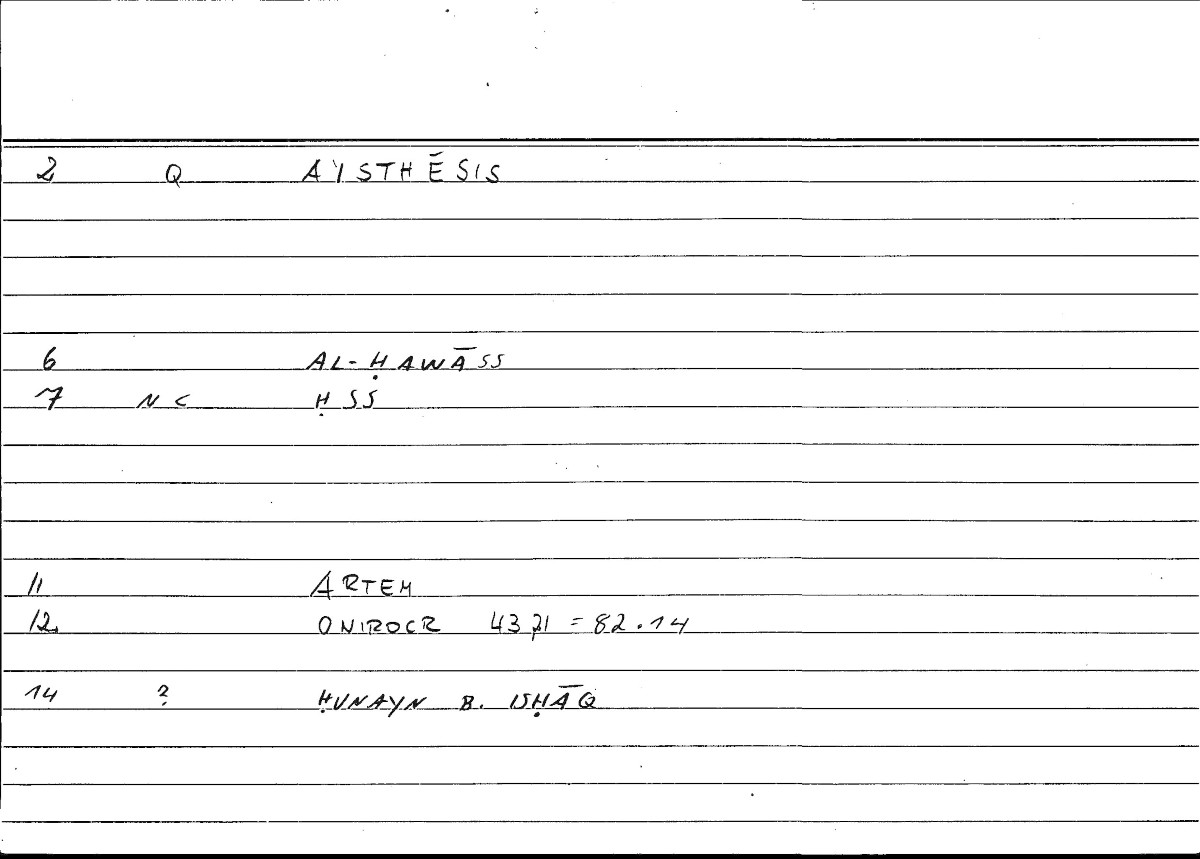 2 Q A'ISTHĒSIS
6 AL-ḤAWĀSS
7 NC ḤSS
11 ARTEM
12 ONIROCR 43,21 = 82.14
14 ? ḤUNAYN B. ISḤĀQ